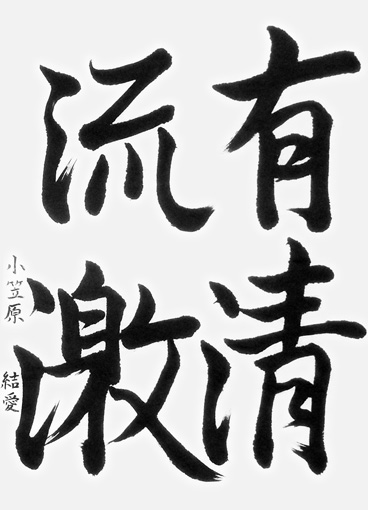 有清
流激
小笠原 結愛